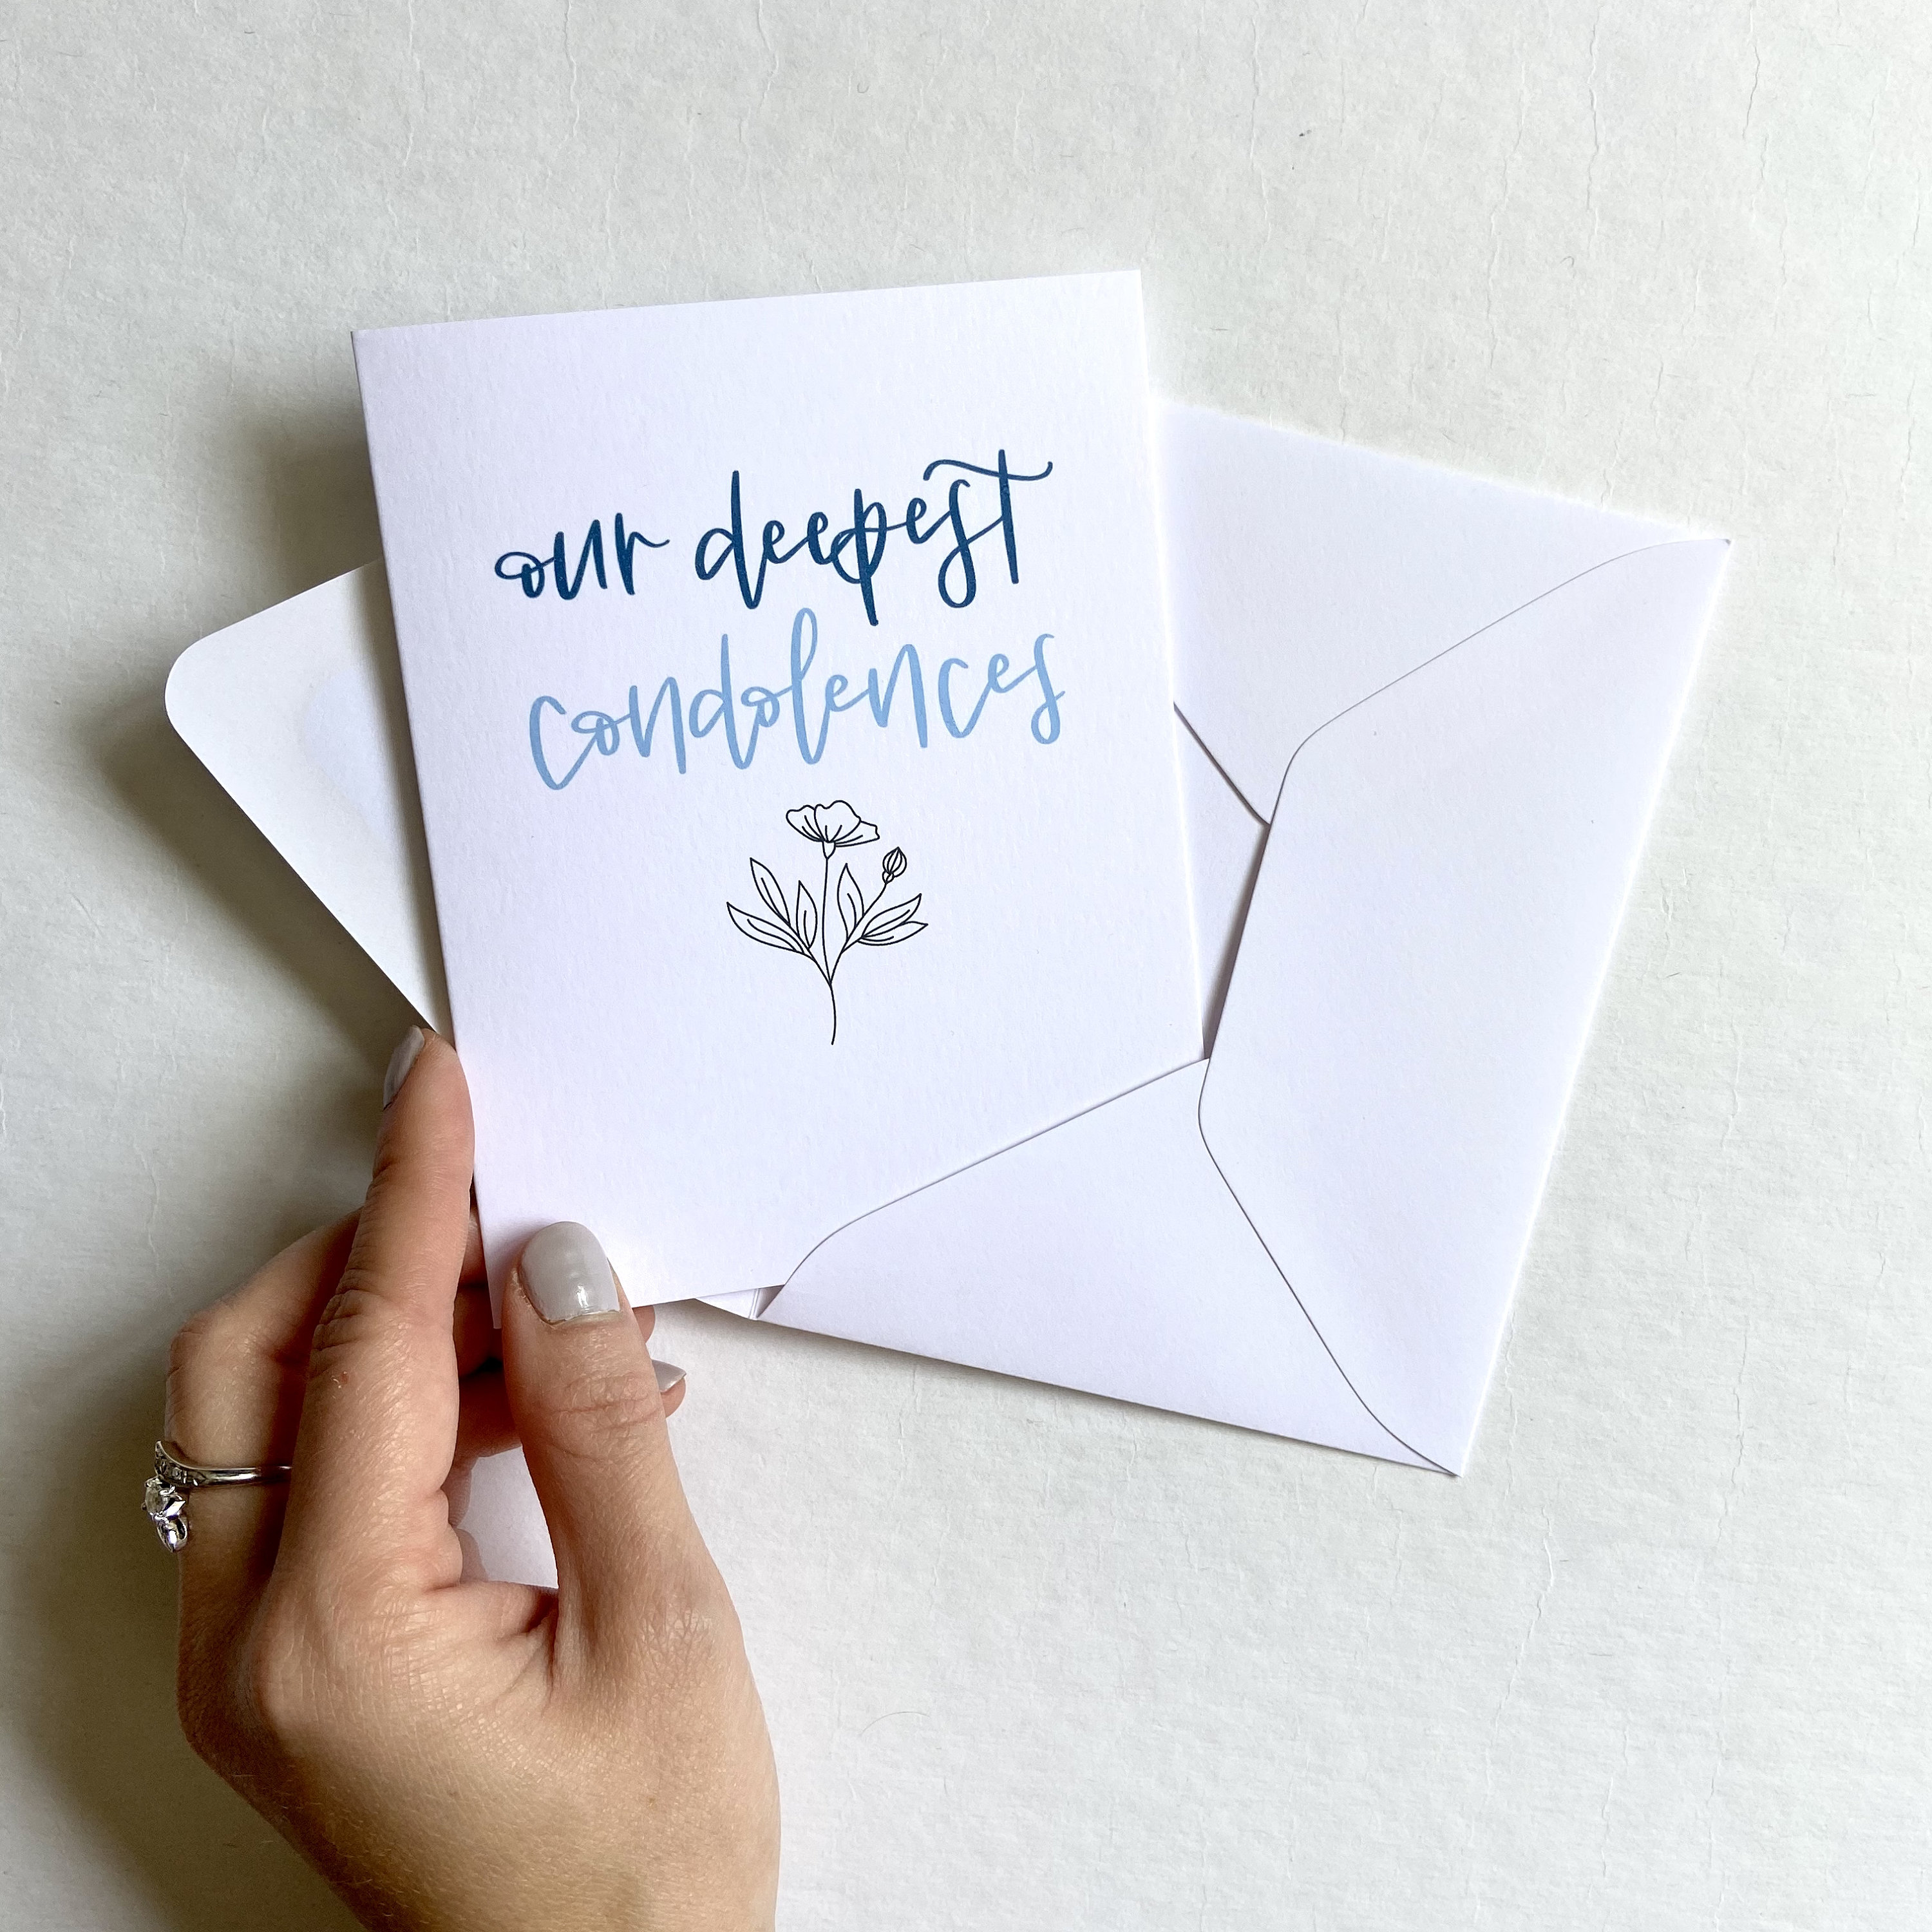 our deepest
condolences